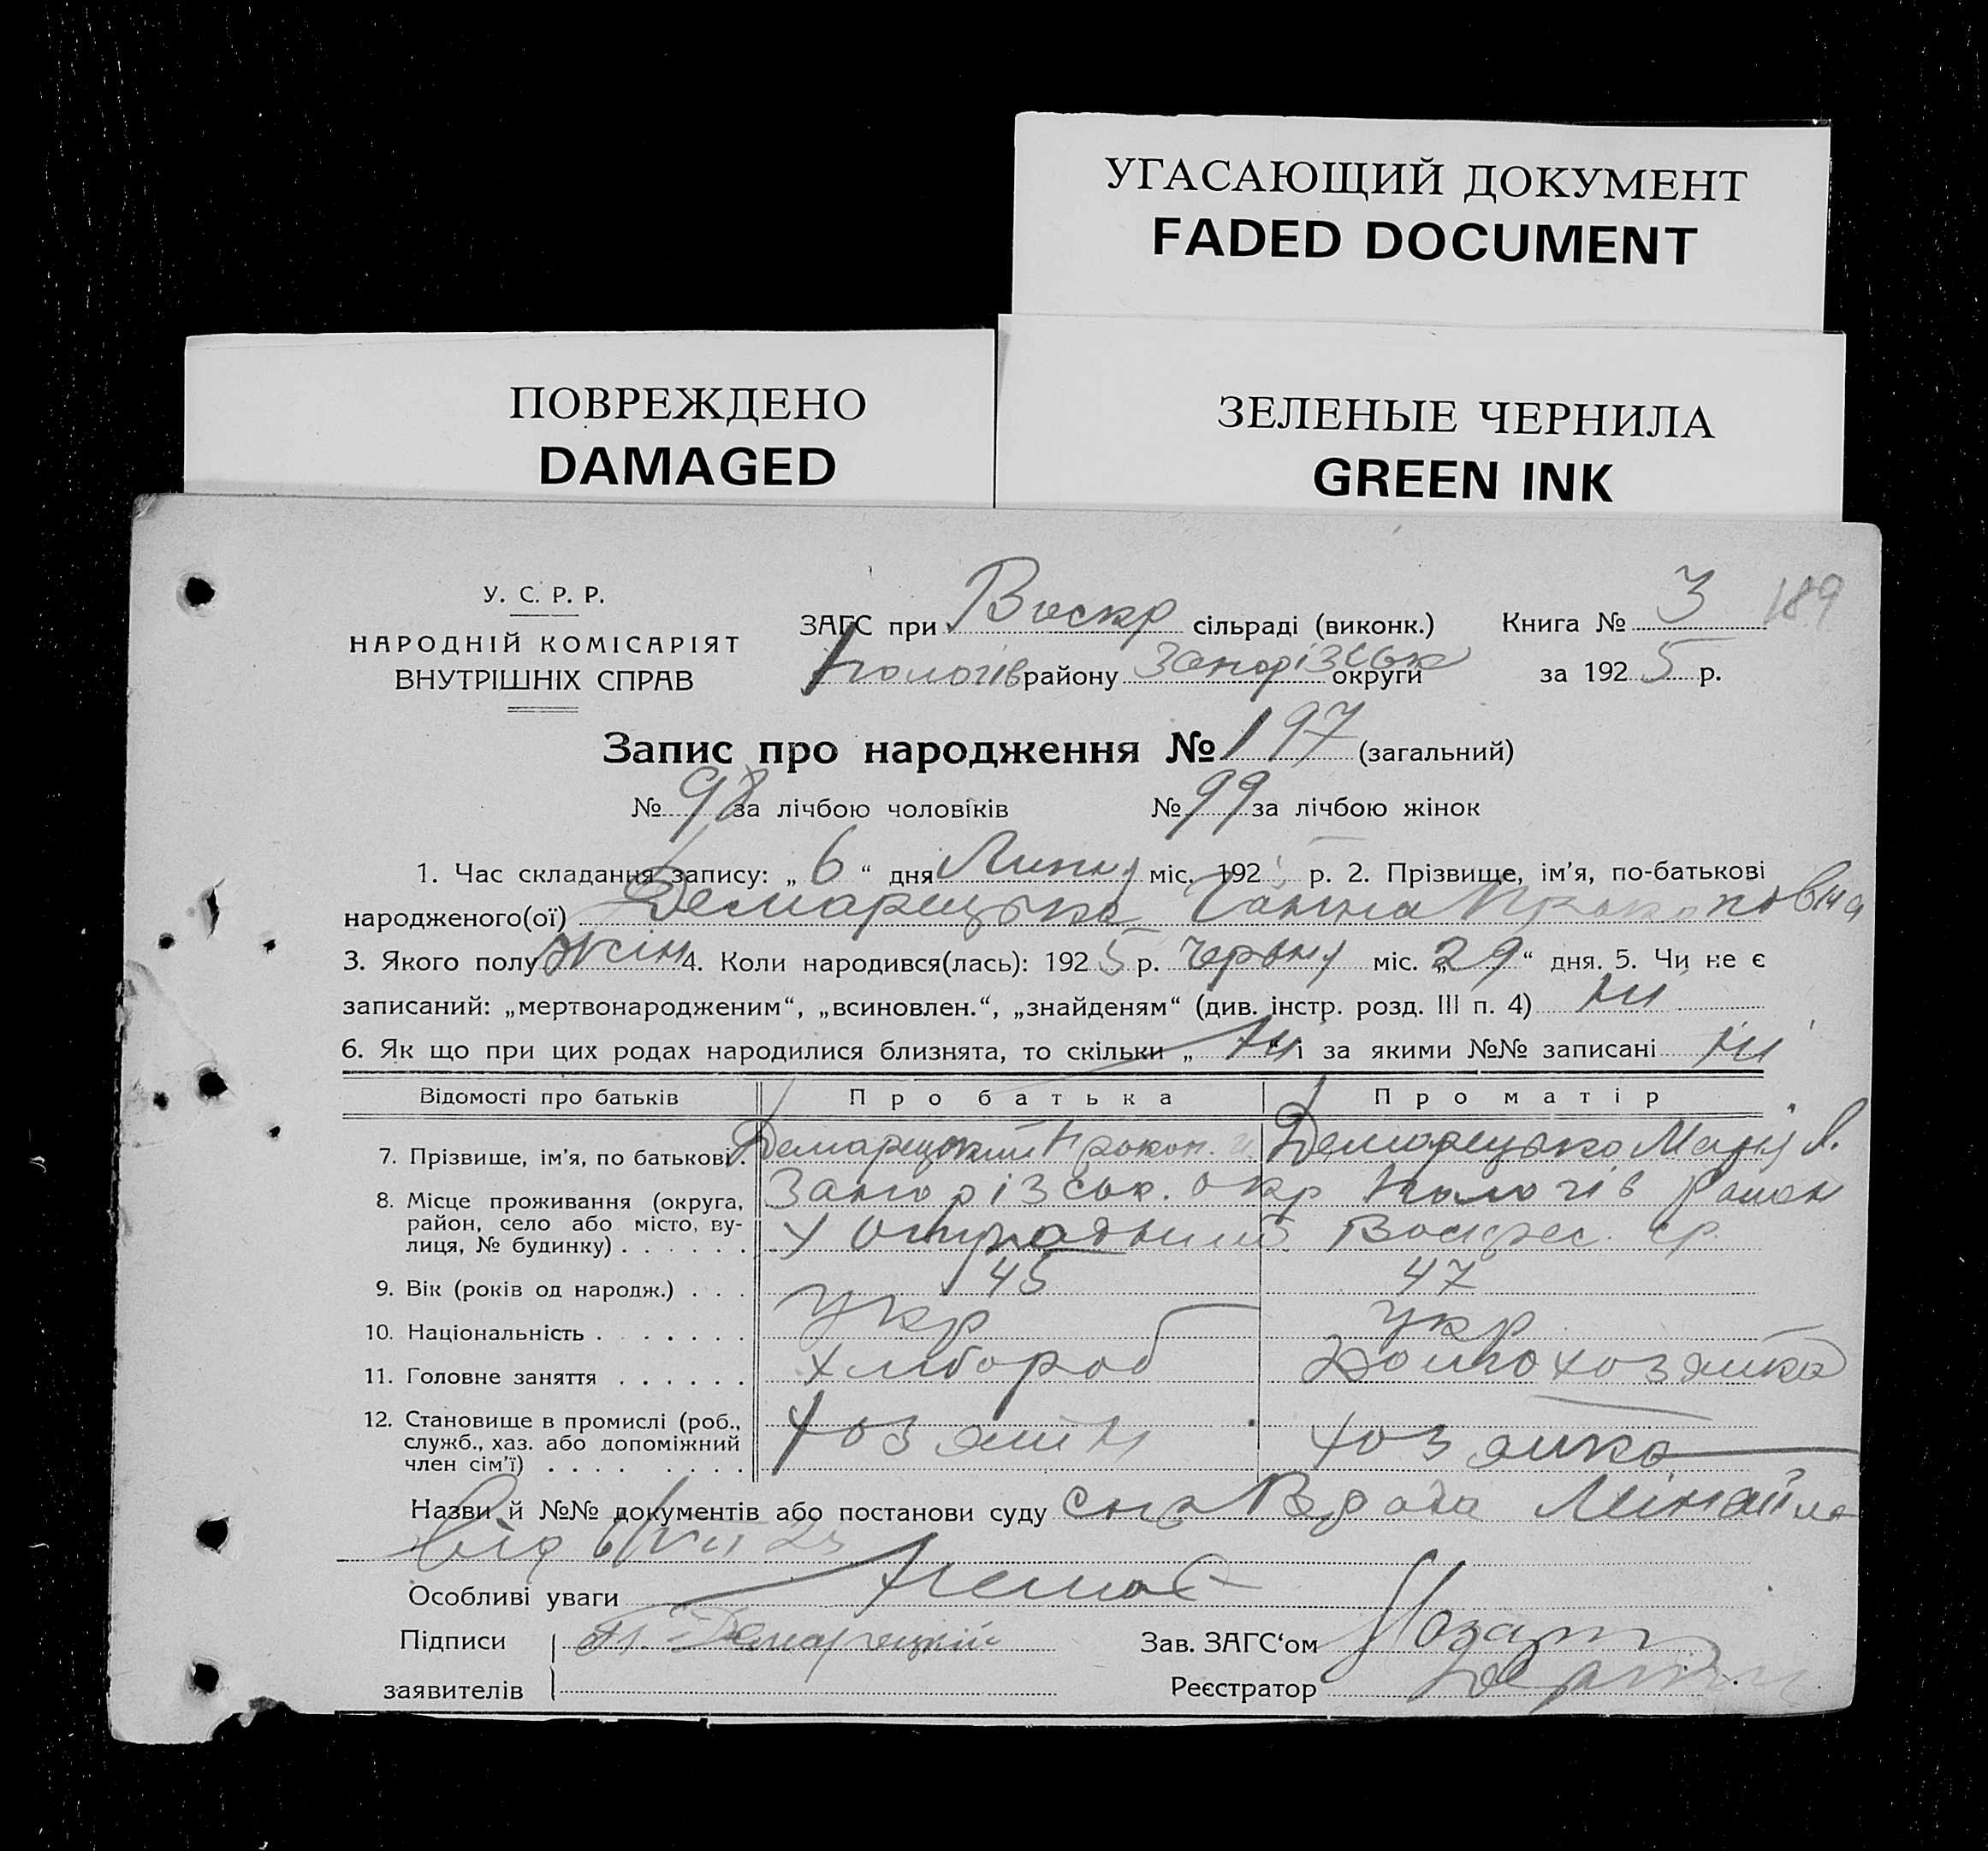 УГАСАЮЩИЙ ДОКУМЕНТ
FADED DOCUMENT
ПОВРЕЖДЕНО
DAMAGED
ЗЕЛЕНЫЕ ЧЕРНИЛА
GREEN INK
У. С. Р. Р.
НАРОДНІЙ КОМІСАРІЯТ
ВНУТРІШНІХ СПРАВ
ЗАГС при Воскр сільраді (виконк.)
Пологів району Запорізськ округи
Книга № 3 189
за 1925 р.
Запис про народження № 197 (загальний)
№ 98 за лічбою чоловіків № 99 за лічбою жінок
1. Час складання запису: „ 6 “ дня Липня міс. 192 р. 2. Прізвище, ім'я, по-батькові
народженого(ої) Демарецька Ганна Прокоповна
3. Якого полу жін 4. Коли народився(лась): 1925 р. Червня міс. „29“ дня. 5. Чи не є
записаний: „мертвонародженим“, „всиновлен.“, „знайденям“ (див. інстр. розд. III п. 4) ни
6. Як що при цих родах народилися близнята, то скільки „ ни “ і за якими №№ записані ни
Відомості про батьків Про батька Про матір
7. Прізвище, ім'я, по батькові. Демарецький Прокоп. Демарецька Марія
8. Місце проживання (округа, Запорізськ. окр Пологів район
район, село або місто, ву- х Отрадний Воскрес. ср.
лиця, № будинку) . . . . . .
9. Вік (років од народж.) . . . 45 47
10. Національність . . . . . . . укр укр
11. Головне заняття . . . . . . хлибороб домохозяйка
12. Становище в промислі (роб., хозяин хозяйка
служб., хаз. або допоміжний
член сім'ї) . . . . . . . .
Назви й №№ документів або постанови суду
від 6/VII 25
Особливі уваги Немає
Підписи Демарецкий Зав. ЗАГС'ом
заявителів Реєстратор